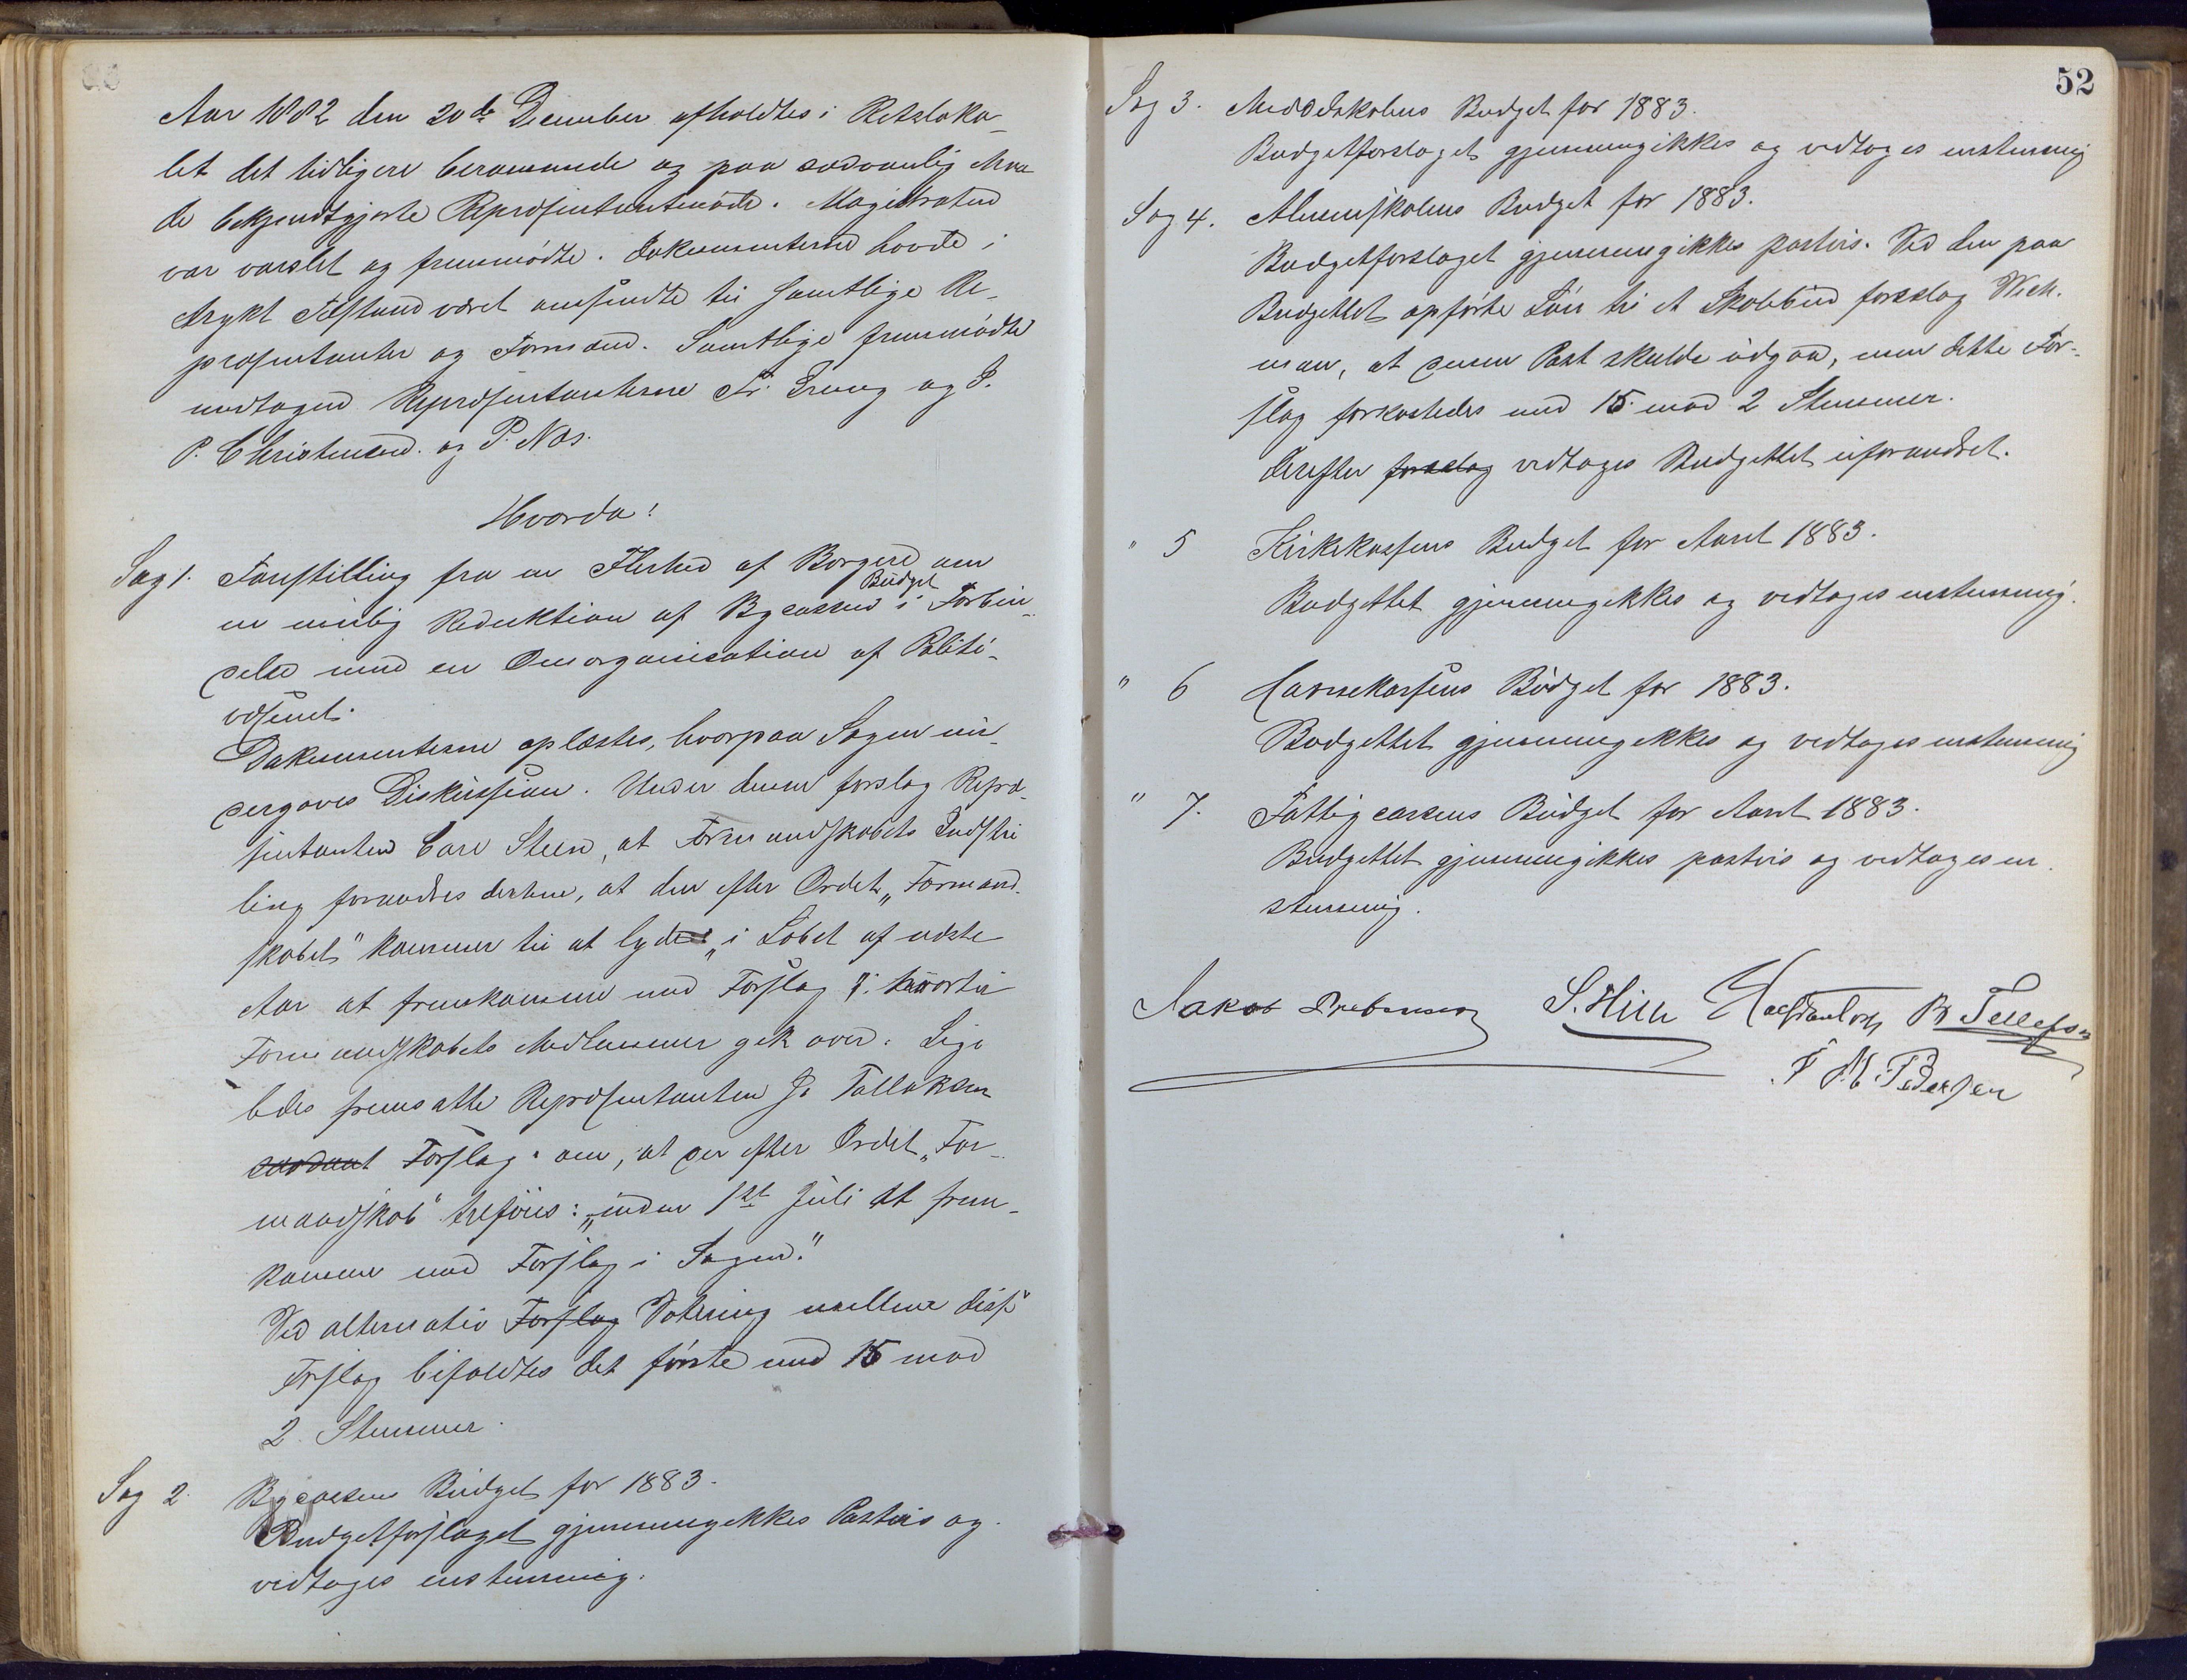 Aar 1882 den 20de December afholdtes i Retsloka-
let det tidligere berammede og paa sædvanlig Maa
de bekjendtgjorte Repræsentantmøde. Magistraten
var varslet og fremmødte. Dokumenterne havde i
trykt Tilstand været omsendte til samtlige Re-
præsentanter og Formænd. Samtlige fremmødte
undtagen Repræsentanterne Fr. Treng og J.
P. Christensen. og P. Næs.
Hvorda:
Sag 1. Forestilling fra en Flerhed af Borgere om
Budget
en mulig Reduktion af Bycassens i Forbin-
delse med en Omorganisation af Politi-
væsenet.
Dokumenterne oplæstes, hvorpaa Sagen un-
dergaves Diskussion. Under denne forslog Repræ-
sentanten Carl Steen, at Formandskabets Indstil
ling forandres derhen, at den efter Ordet „Formand-
skabet" kommer til at lyde: „i Løbet af næste
Aar at fremkomme med Forslag": hvortil
Formandskabets Medlemmer gik over. Lige
ledes fremsatte Repræsentanten Js Tallaksen
saadant Forslag om, at der efter Ordet „For-
mandskab" tilføies: „inden 1ste Juli at frem-
komme med Forslag i Sagen."
Ved alternativ Forslag Votering mellem disse
Forslag bifaldtes det første med 15 mod
2 Stemmer.
Sag 2. Bycassens Budget for 1883.
Budgetforslaget gjennemgikkes Postvis og
vedtoges enstemmig.
52
Sag 3. Middelskolens Budget for 1883.
Budgetforslaget gjennemgikkes og vedtoges enstemmig
Sag 4. Almuskolens Budget for 1883.
Budgetforslaget gjennemgikkes postvis. Ved den paa
Budgettet opførte Løn til et Skolebud forslog Wich.
man, at denne Post skulde udgaa, men dette For-
slag forkastedes med 15 mod 2 Stemmer.
Derefter forslog vedtoges Budgettet uforandret.
" 5 Kirkekassens Budget for Aaret 1883.
Budgettet gjennemgikkes og vedtoges enstemmig.
" 6 Havnekassens Budget for 1883.
Budgettet gjennemgikkes og vedtoges enstemmig
" 7. Fattigcassens Budget for Aaret 1883.
Budgettet gjennemgikkes postvis og vedtoges en
stemmig.
Jakob Prebensen S. Hill B Tellefsen
F M Pedersen